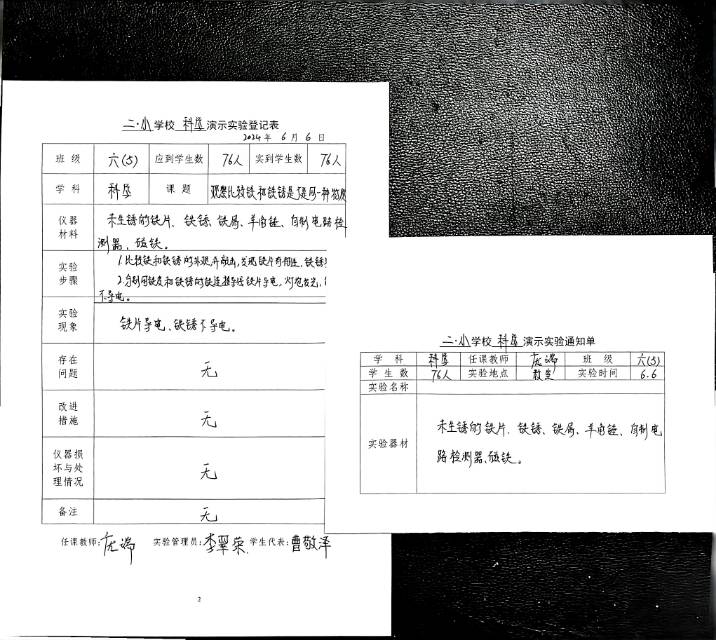 二·小学校 科学 演示实验登记表
2024年 6月 6日
班级 六(5) 应到学生数 76人 实到学生数 76人
学科 科学 课题 观察比较铁和铁锈是不是同一种物质
仪器材料 未生锈的铁片、铁锈、铁屑、羊角锤、自制电路检
测器、磁铁。
实验步骤 1.比较铁和铁锈的外观并敲击,发现铁片有韧性、铁锈
2.分别用铁皮和铁锈的铁连接导线铁片导电,灯泡发光,
不导电。
实验现象 铁片导电、铁锈不导电。
存在问题 无
改进措施 无
仪器损坏与处理情况 无
备注 无
任课教师: 实验管理员:李翠荣 学生代表:曹敬泽
2
二·小学校 科学 演示实验通知单
学科 科学 任课教师 班级 六(5)
学生数 76人 实验地点 教室 实验时间 6.6
实验名称
实验器材 未生锈的铁片、铁锈、铁屑、羊角锤、自制电
路检测器、磁铁。